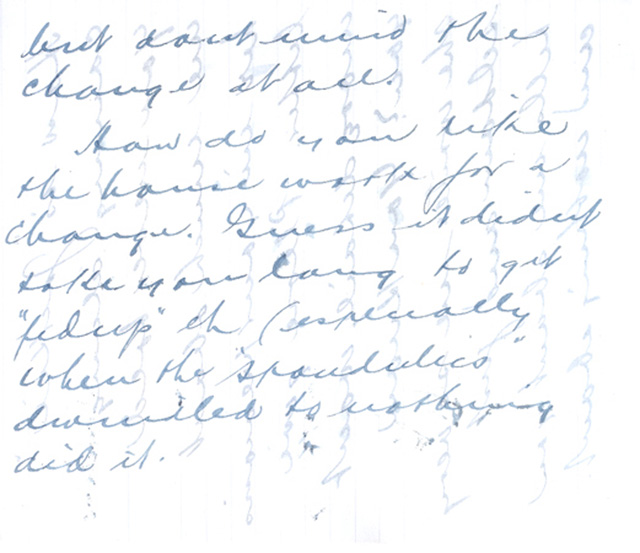 but dont mind the
change at all.
How do you like
the house work for a
change. Guess it didnt
take you long to get
"fed up" eh (especially
when the "spondulics"
dwindled to nothing
did it.